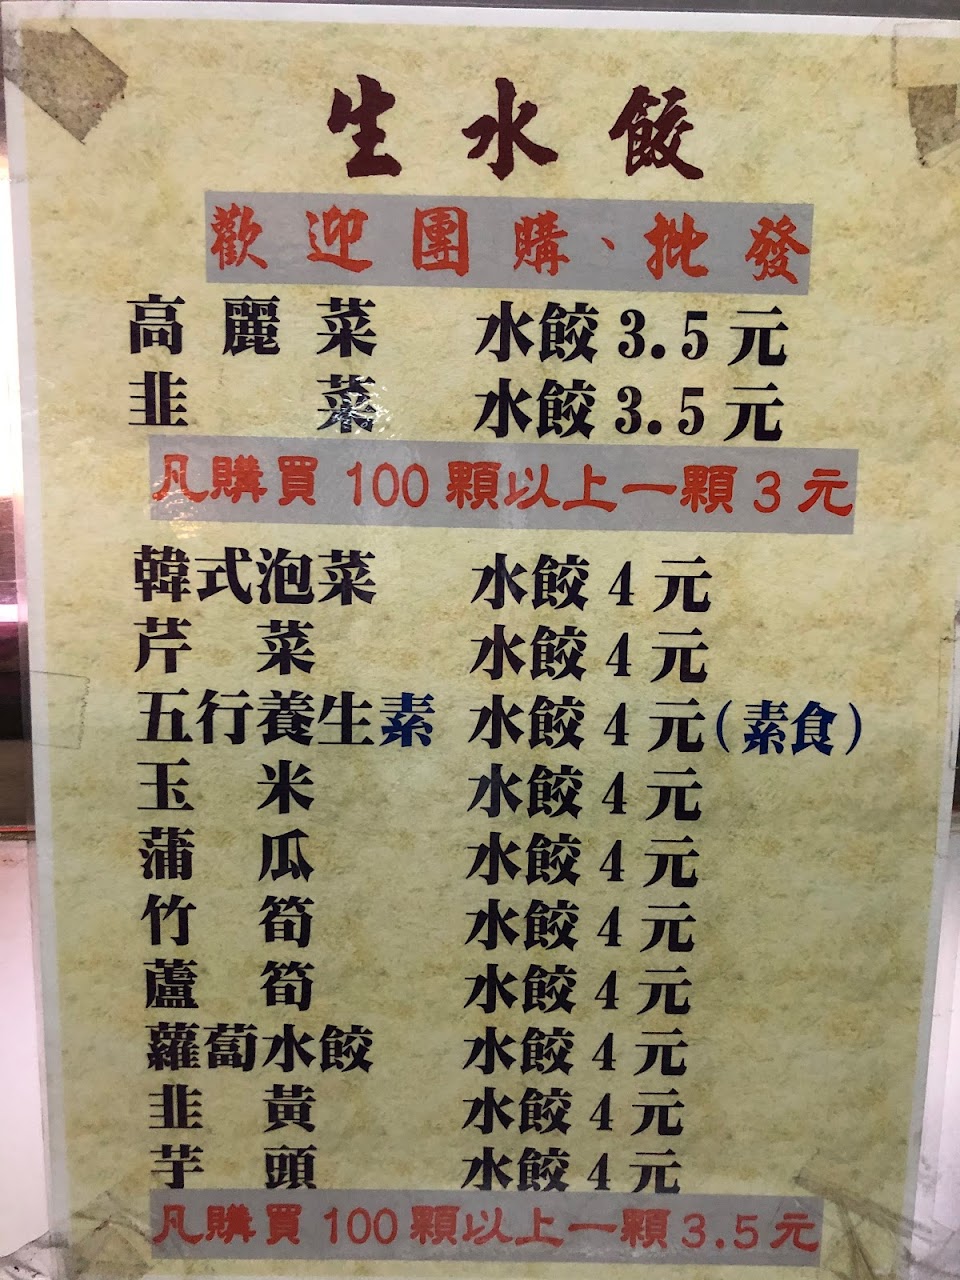 生水餃
歡迎團購、批發
高麗菜 水餃 3.5 元
韭菜 水餃 3.5 元
凡購買 100 顆以上一顆 3 元
韓式泡菜 水餃 4 元
芹菜 水餃 4 元
五行養生素 水餃 4 元(素食)
玉米 水餃 4 元
蒲瓜 水餃 4 元
竹筍 水餃 4 元
蘆筍 水餃 4 元
蘿蔔水餃 水餃 4 元
韭黃 水餃 4 元
芋頭 水餃 4 元
凡購買 100 顆以上一顆 3.5 元